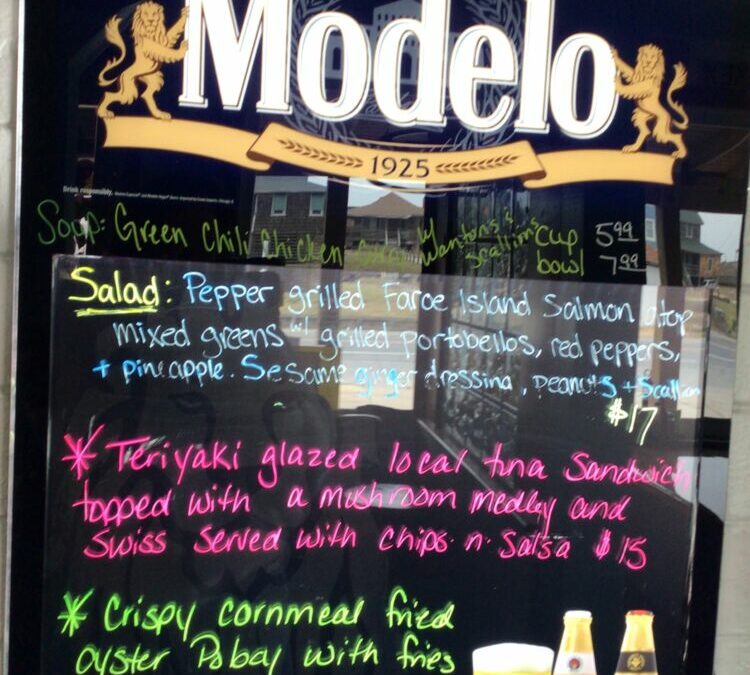 Modelo
1925
Drink responsibly.
Soup: Green Chili Chicken w/ Wontons & scallions cup 5.99
bowl 7.99
Salad: Pepper grilled Faroe Island Salmon atop
mixed greens w/ grilled portobellos, red peppers,
+ pineapple. Sesame ginger dressing, peanuts + Scallion
$17
* Teriyaki glazed local tuna Sandwich
topped with a mushroom medley and
Swiss served with chips n Salsa $15
* Crispy cornmeal fried
oyster Poboy with fries